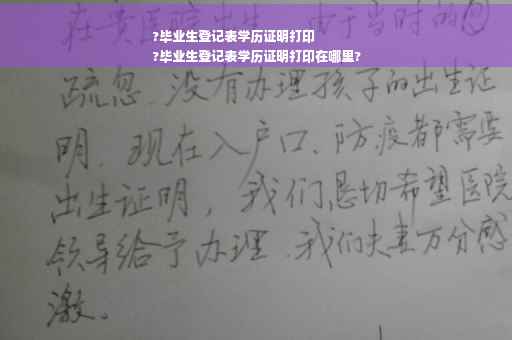 ?毕业生登记表学历证明打印
?毕业生登记表学历证明打印在哪里?
在贵医院出生,由于当时的
疏忽.没有办理孩子的出生证
明.现在入户口、防疫都需要
出生证明,我们恳切希望医院
领导给予办理.我们夫妻万分感
激。